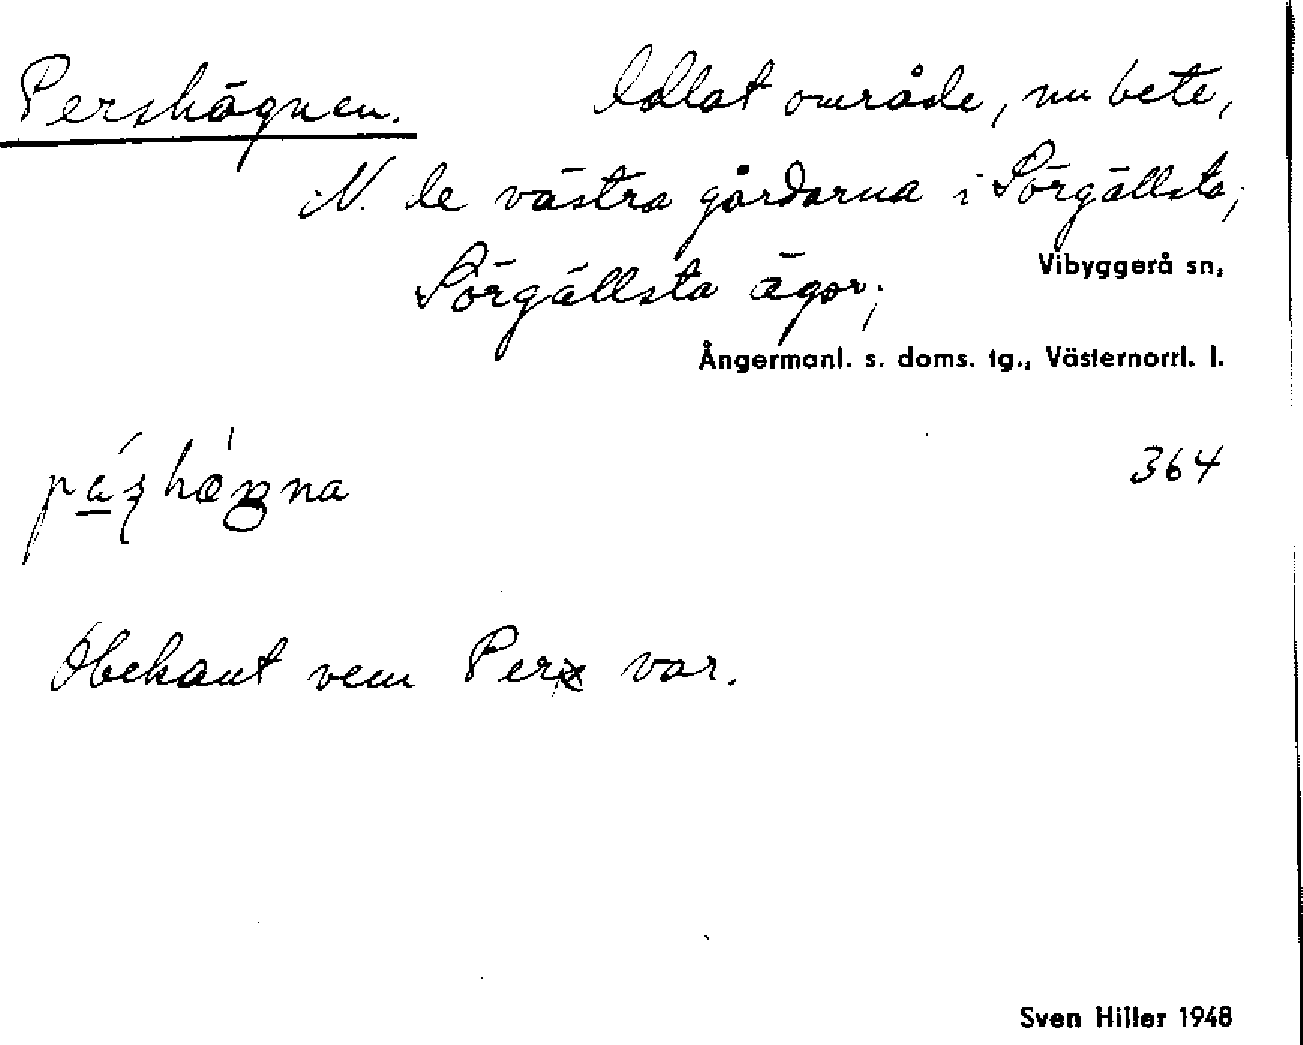 Pershägnen. Odlat område, nu bete,
N. de västra gårdarna i Sörgällsta,
Sörgällsta ägor;
Vibyggerå sn,
Ångermanl. s. doms. tg., Västernorrl. l.
364
Obekant vem Per var.
Sven Hiller 1948